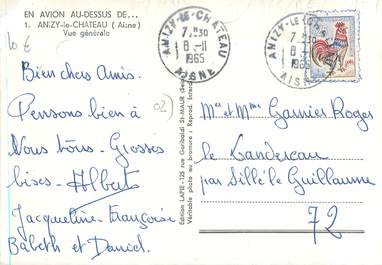 EN AVION AU-DESSUS DE...
1. ANIZY-le-CHATEAU (Aisne)
Vue générale
10 €
Bien chers Amis.
Pensons bien à
Nous tous. Grosses
bises. Albert
Jacqueline. Françoise
Babeth et Daniel.
02)
Edition LAPIE - 125 rue Garibaldi St-MAUR
Véritable photo au bromure : Reprod. interd.
ANIZY-LE-CHATEAU
7H30
8-11
1965
AISNE
ANIZY-LE-CH
7H30
8-11
1965
AISNE
Mr et Mme Garnier Roger
le
par Sillé le Guillaume
72